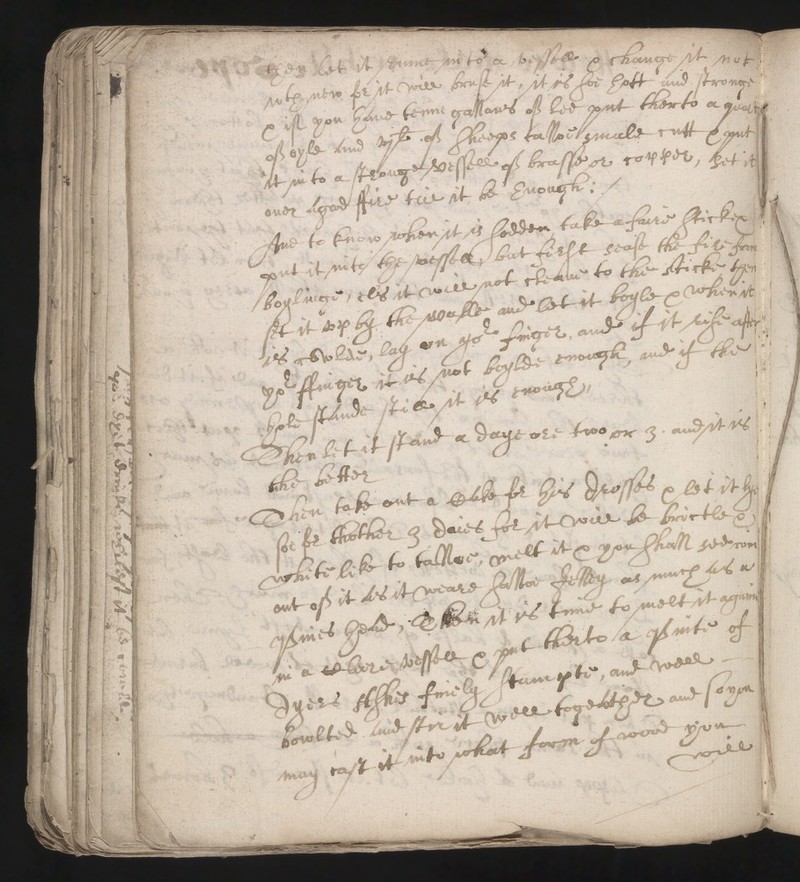 then let it runne into a vessell & change it not
with new for it will bruse it, it is soe hott and stronge
& if you have tenne gallans of lee put therto a quart
of oyle and vjli of sheeps talloe smale cutt & put
it into a stronge vessell of brasse or copper, set it
over a good ffire till it be enough:
And to know when it is sodden take a faire sticke &
put it into the vessell, but first cease the fire from
boylinge, els it will not cleave to the sticke then
set it vp by the walle and let it boyle & when it
is cowlde, lay on yor finger, and if it rise after
yor ffinger it is not boylde enough, and if the
hole stande still it is enough,
Then let it stand a daye ore two or 3. and it is
the better
Then take out a Cake for his drosses & let it lye
soe for thother 3 daies for it will be brictle &
white like to talloe, melt it & you shall see com
out of it as it weare salloe Jelley as much as a
pines head, Then it is time to melt it againe
in a cleere vessell & put therto a pinte of
Dyers finely stampte, and well
bowlted and stir it well together and so you
may cast it into what form of wood you
will